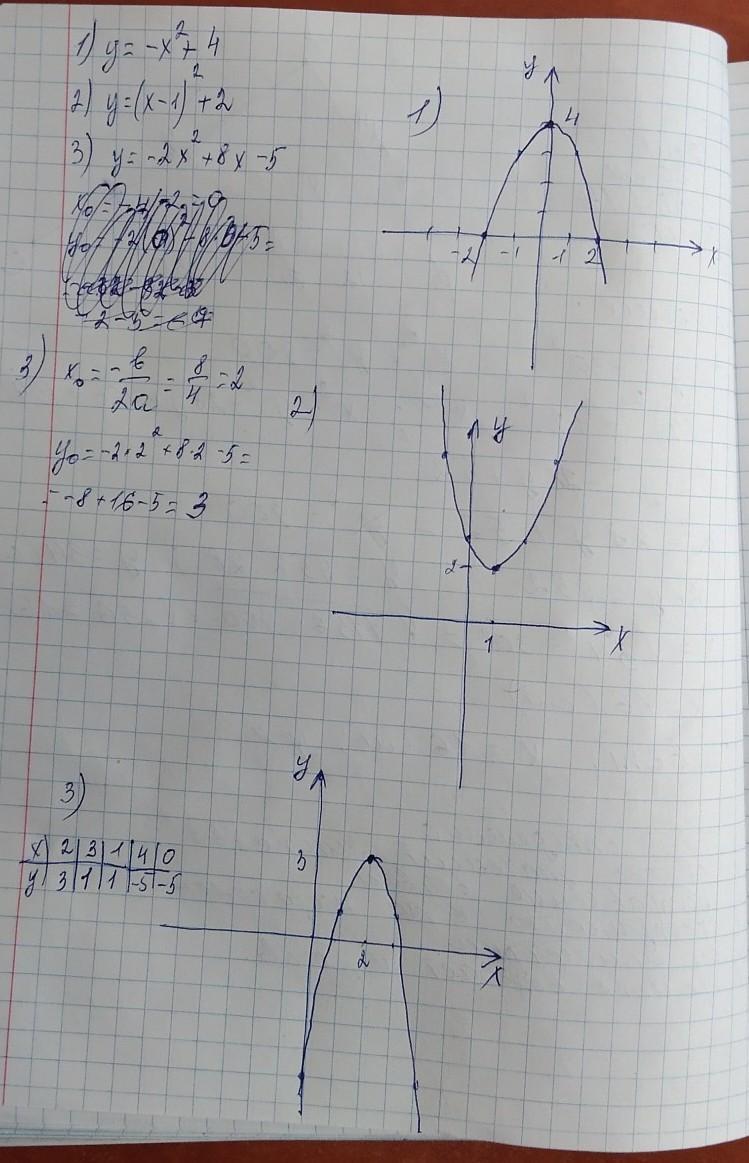 1) y = -x² + 4
2) y = (x-1)² + 2
3) y = -2x² + 8x - 5
3) x₀ = -b/2a = 8/4 = 2
y₀ = -2·2² + 8·2 - 5 =
= -8 + 16 - 5 = 3
1)
y
4
-2 -1 1 2 x
2)
y
2
1 x
3)
x 2 3 1 4 0
y 3 1 1 -5 -5
y
3
2
x